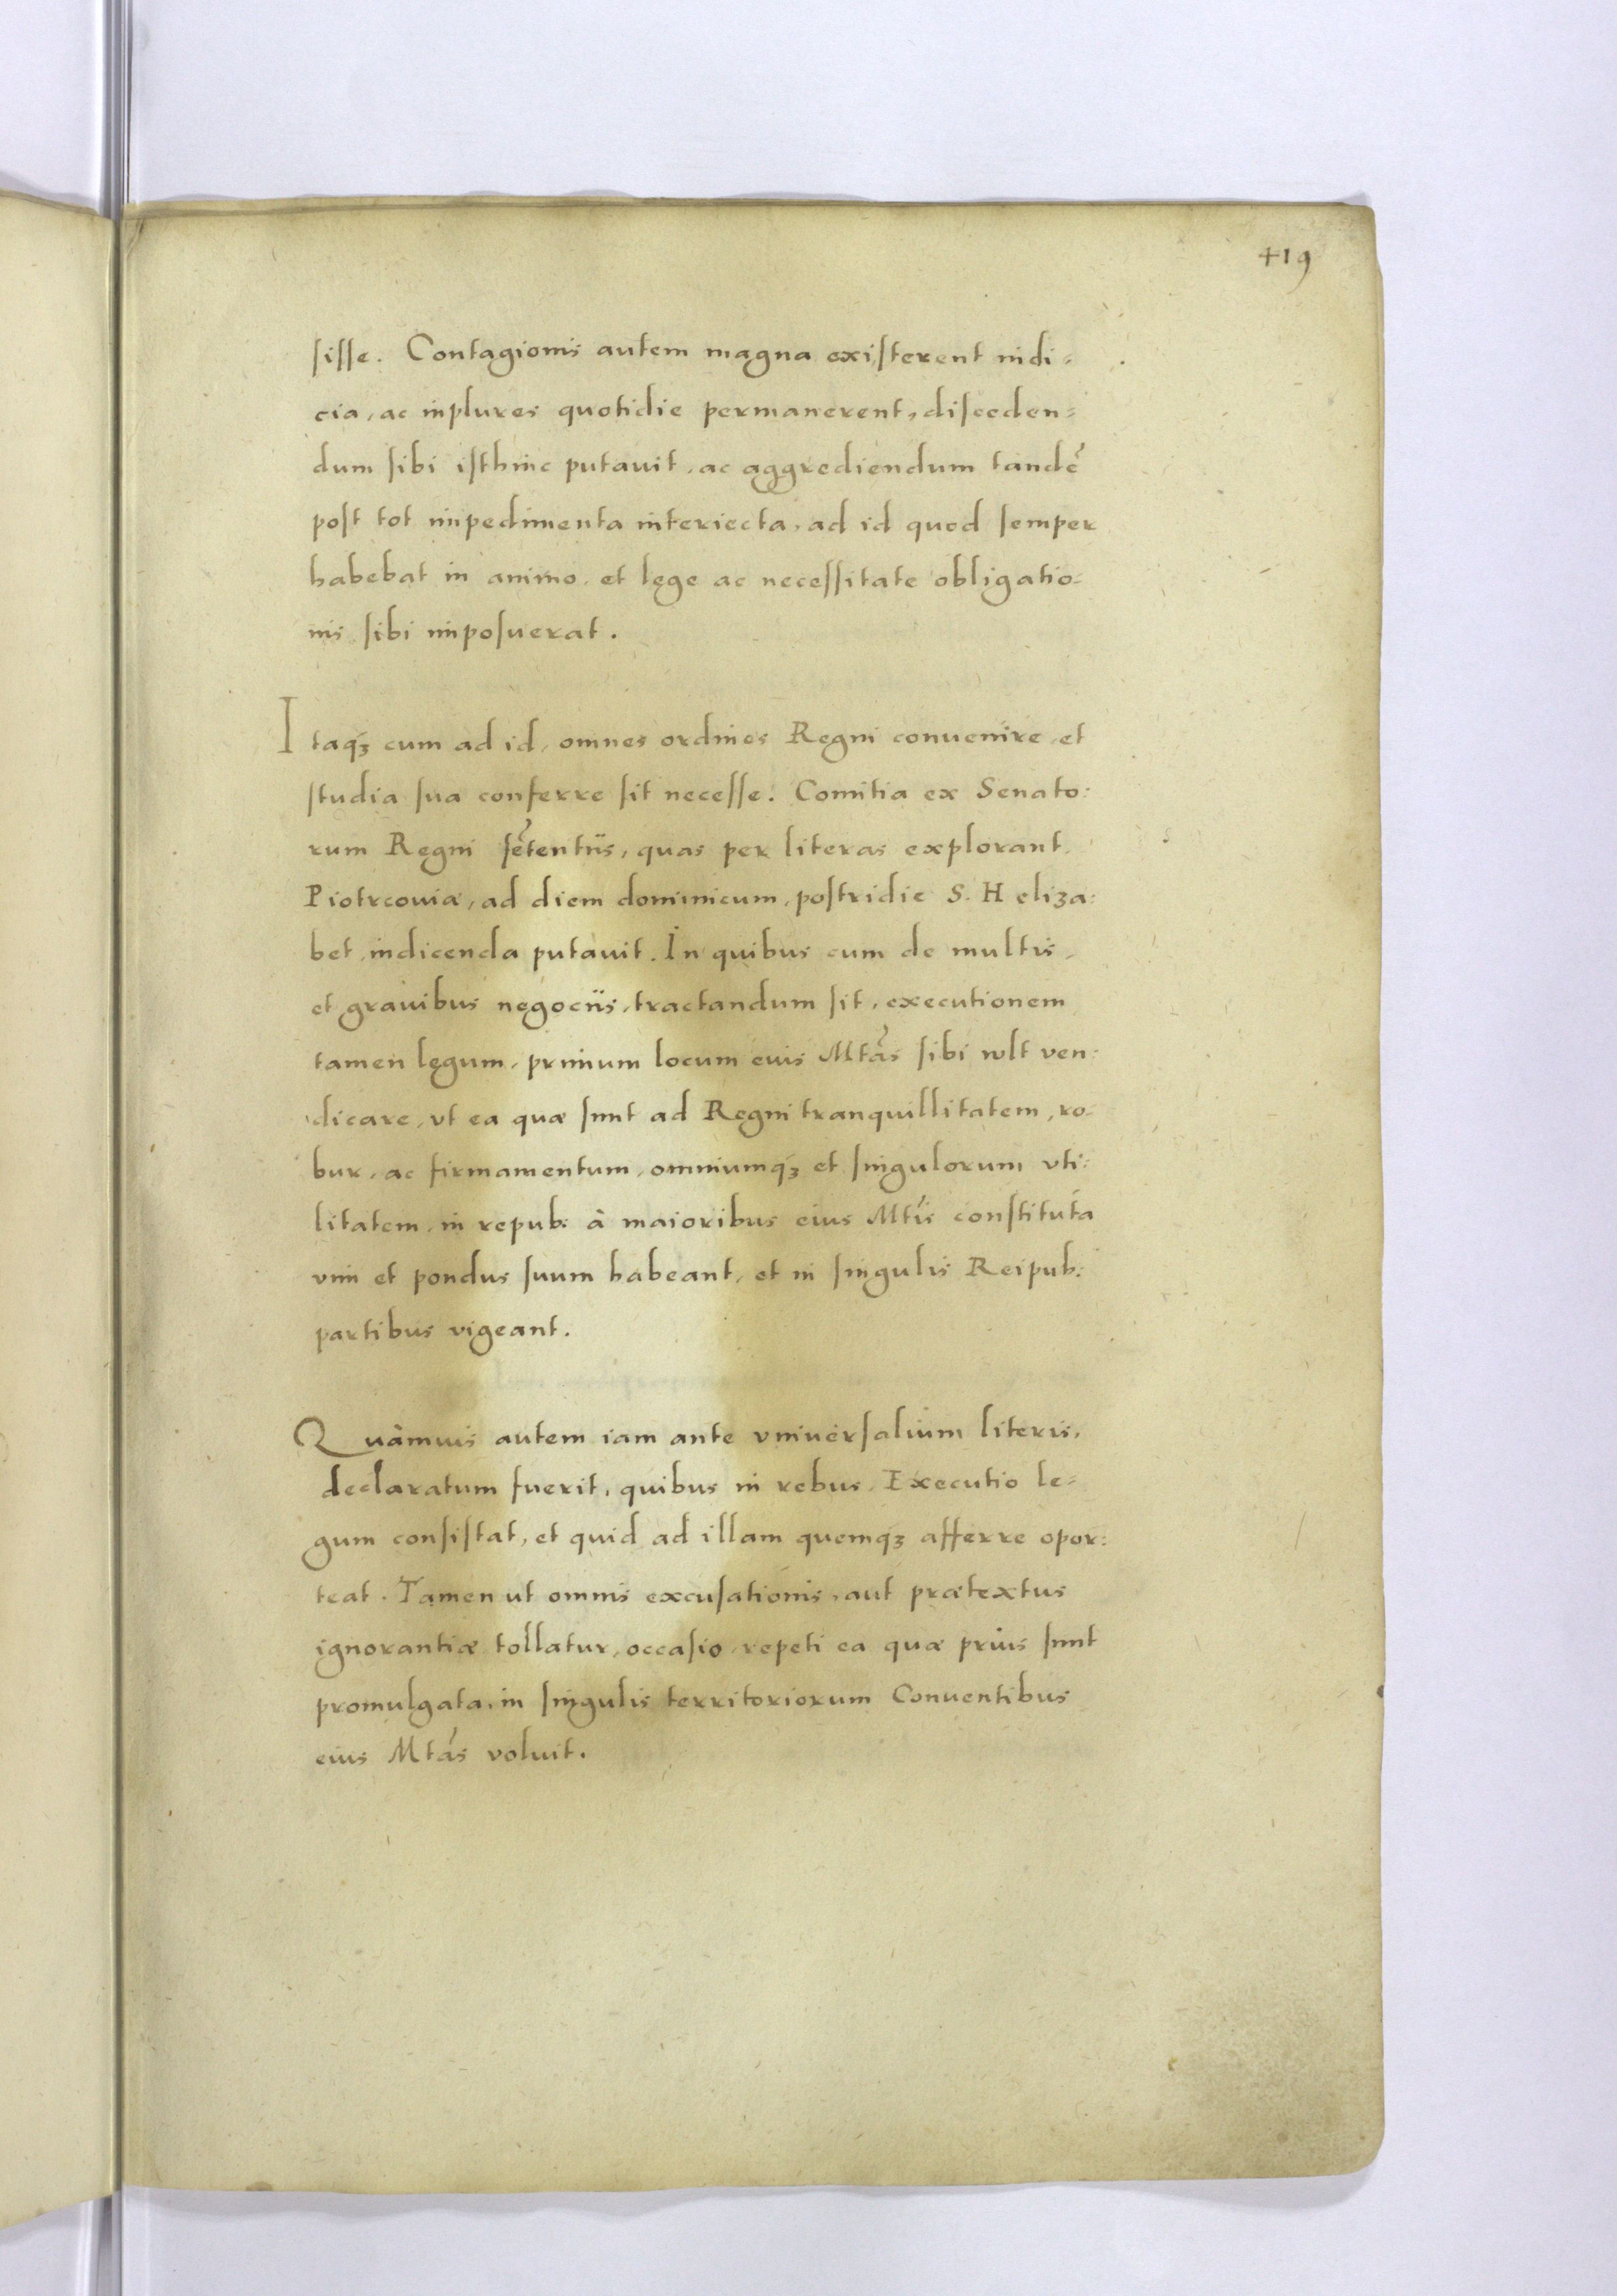 419
sisse. Contagionis autem magna existerent indi-
cia, ac inplures quotidie permanerent, disceden-
dum sibi isthinc putauit, ac aggrediendum tandẽ
post tot impedimenta interiecta, ad id quod semper
habebat in animo, et lege ac necessitate obligatio-
nis sibi imposuerat.
Itaq́ꝫ cum ad id, omnes ordines Regni conuenire, et
studia sua conferre sit necesse. Comitia ex Senato:
rum Regni sẽtentiis, quas per literas explorant.
Piotrcouiæ, ad diem dominicum, postridie S. Heliza:
bet, indicenda putauit. In quibus cum de multis,
et grauibus negociis, tractandum sit, executionem
tamen legum, primum locum euis Mtãs sibi vult ven:
dicare, vt ea quæ sunt ad Regni tranquillitatem, ro-
bur, ac firmamentum, omniumq́ꝫ et singulorum vti:
litatem, in repub: à maioribus eius Mtis constituta
vim et pondus suum habeant, et in singulis Reipub:
partibus vigeant.
Quàmuis autem iam ante vniuersalium literis,
declaratum fuerit, quibus in rebus, Executio le-
gum consistat, et quid ad illam quemq́ꝫ afferre opor:
teat. Tamen ut omnis excusationis, aut prætextus
ignorantiæ tollatur, occasio, repeti ea quæ prius sunt
promulgata, in singulis territoriorum Conuentibus
eius Mtãs voluit.